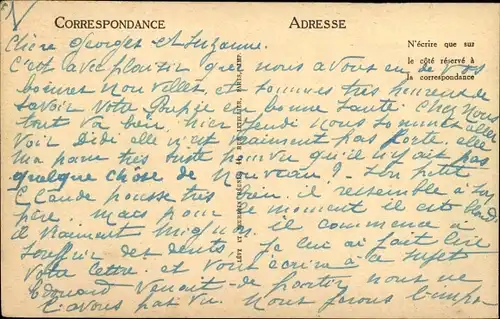 CORRESPONDANCE
ADRESSE
N'écrire que sur
le côté réservé à
la correspondance
Chère Georges et Suzanne.
C'est avec plaisir que nous avons eu de vos
bonnes nouvelles, et sommes très heureux de
savoir votre Poupée en bonne santé. Chez nous
tout va bien, hier jeudi nous sommes allés
voir Didi elle n'est vraiment pas forte, elle
ma paru très triste qu'il n'y ait pas
quelque chose de nouveau? Son petit
Claude pousse très bien, il ressemble à son
père mais pour le moment il est blond
il vraiment mignon. il commence à
souffrir des dents, je lui ai fait lire
Vota lettre, et vous écrira à ce sujet
Edouard venait de partir nous ne
l'avons pas vu. nous ferons